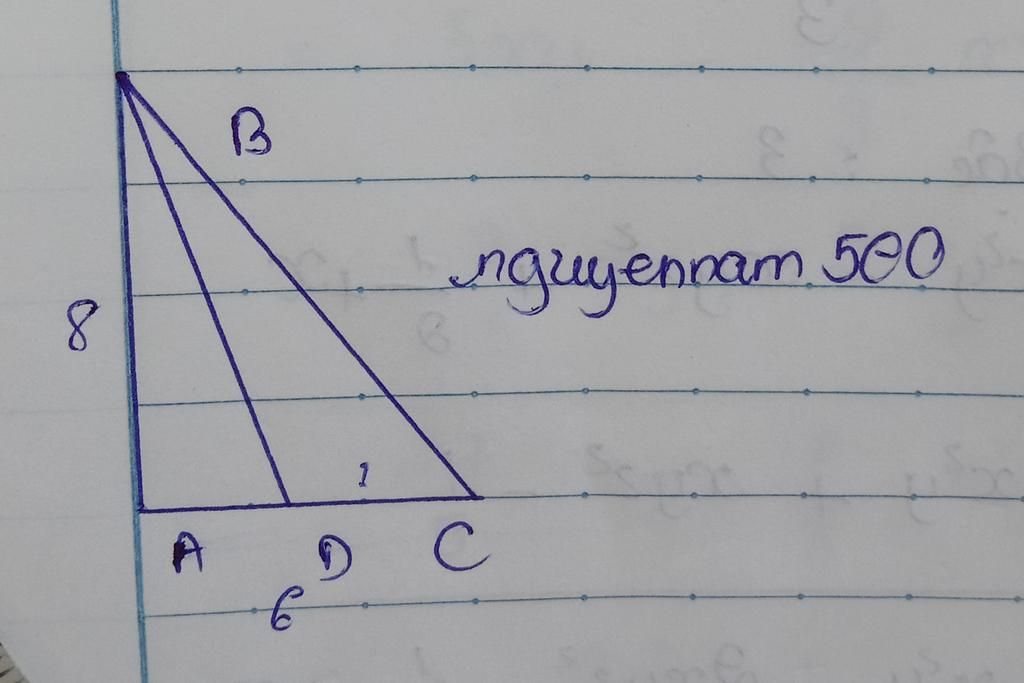 B
nguyennam 500
8
1
A D C
6